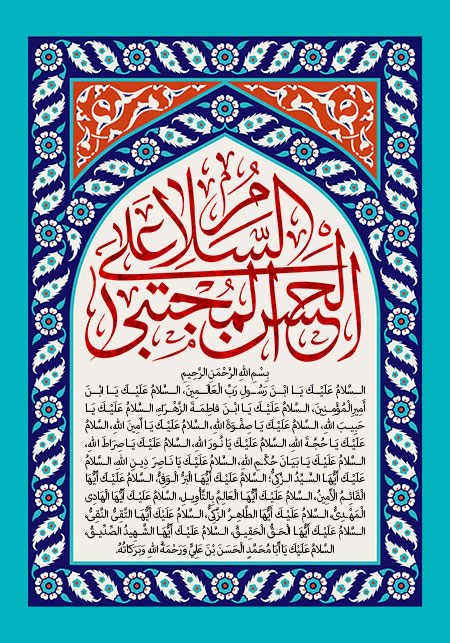 السَّلامُ عَلَى
الحَسَنِ المُجتَبى
بِسْمِ اللهِ الرَّحْمَنِ الرَّحِيمِ
السَّلامُ عَلَيْكَ يَا ابْنَ رَسُولِ رَبِّ الْعَالَمِينَ، السَّلامُ عَلَيْكَ يَا ابْنَ
أَمِيرِالْمُؤْمِنِينَ، السَّلامُ عَلَيْكَ يَا ابْنَ فَاطِمَةَ الزَّهْرَاءِ، السَّلامُ عَلَيْكَ يَا
حَبِيبَ اللهِ، السَّلامُ عَلَيْكَ يَا صِفْوَةَ اللهِ، السَّلامُ عَلَيْكَ يَا أَمِينَ اللهِ، السَّلامُ
عَلَيْكَ يَا حُجَّةَ اللهِ، السَّلامُ عَلَيْكَ يَا نُورَ اللهِ، السَّلامُ عَلَيْكَ يَا صِرَاطَ اللهِ،
السَّلامُ عَلَيْكَ يَا بَيَانَ حُكْمِ اللهِ، السَّلامُ عَلَيْكَ يَا نَاصِرَ دِينِ اللهِ، السَّلامُ
عَلَيْكَ أَيُّهَا السَّيِّدُ الزَّكِيُّ، السَّلامُ عَلَيْكَ أَيُّهَا الْبَرُّ الْوَفِيُّ، السَّلامُ عَلَيْكَ أَيُّهَا
الْقَائِمُ الْأَمِينُ، السَّلامُ عَلَيْكَ أَيُّهَا الْعَالِمُ بِالتَّأْوِيلِ، السَّلامُ عَلَيْكَ أَيُّهَا الْهَادِي
الْمَهْدِيُّ، السَّلامُ عَلَيْكَ أَيُّهَا الطَّاهِرُ الزَّكِيُّ، السَّلامُ عَلَيْكَ أَيُّهَا التَّقِيُّ النَّقِيُّ،
السَّلامُ عَلَيْكَ أَيُّهَا الْحَقُّ الْحَقِيقُ، السَّلامُ عَلَيْكَ أَيُّهَا الشَّهِيدُ الصِّدِّيقُ،
السَّلامُ عَلَيْكَ يَا أَبَا مُحَمَّدٍ الْحَسَنَ بْنَ عَلِيٍّ وَرَحْمَةُ اللهِ وَبَرَكَاتُهُ.